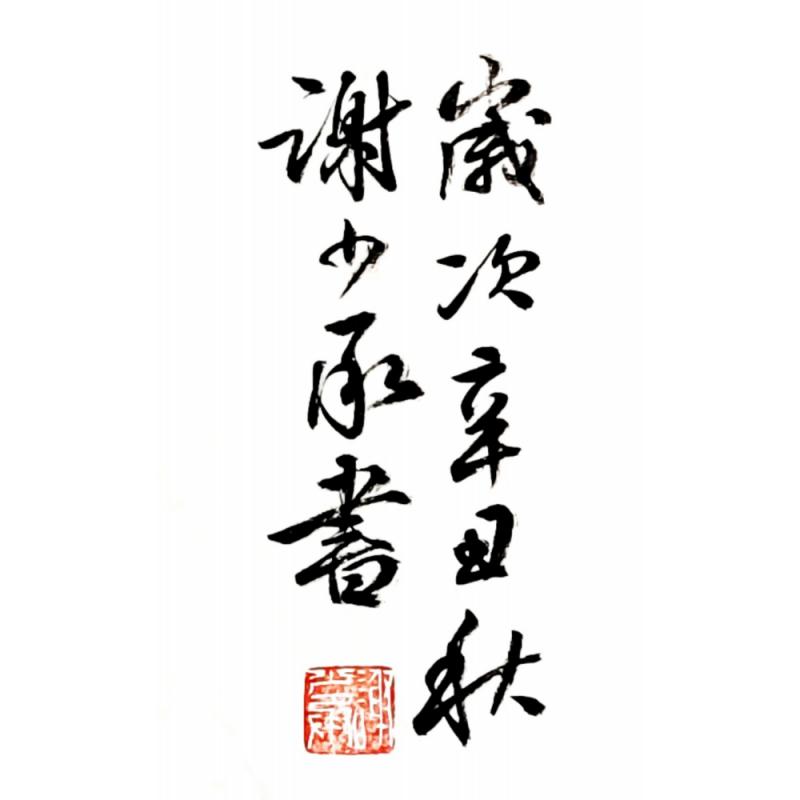 歲次辛丑秋
謝少承書